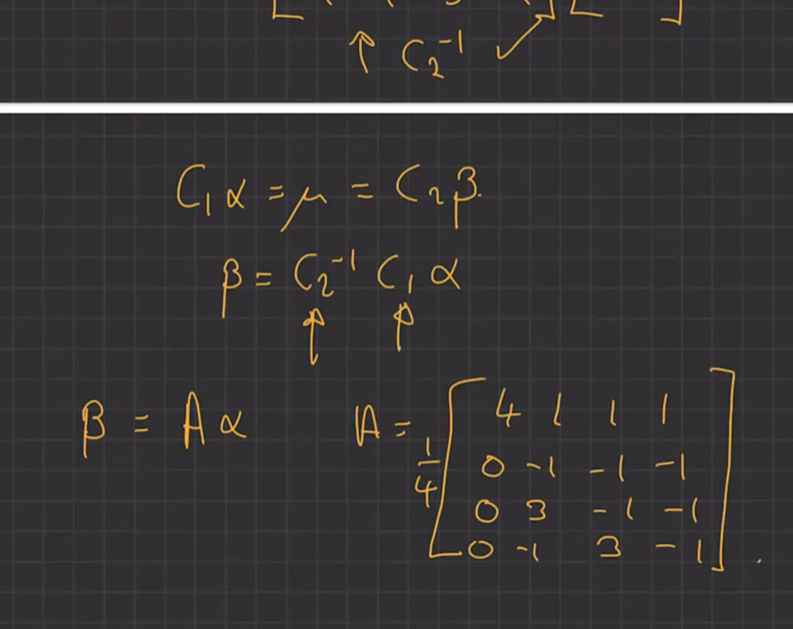 ↑ C₂⁻¹ ✓
C₁ α = μ = C₂ β.
β = C₂⁻¹ C₁ α
↑ ↑
β = A α A = 1/4 [ 4 1 1 1
0 -1 -1 -1
0 3 -1 -1
0 -1 3 -1 ] .